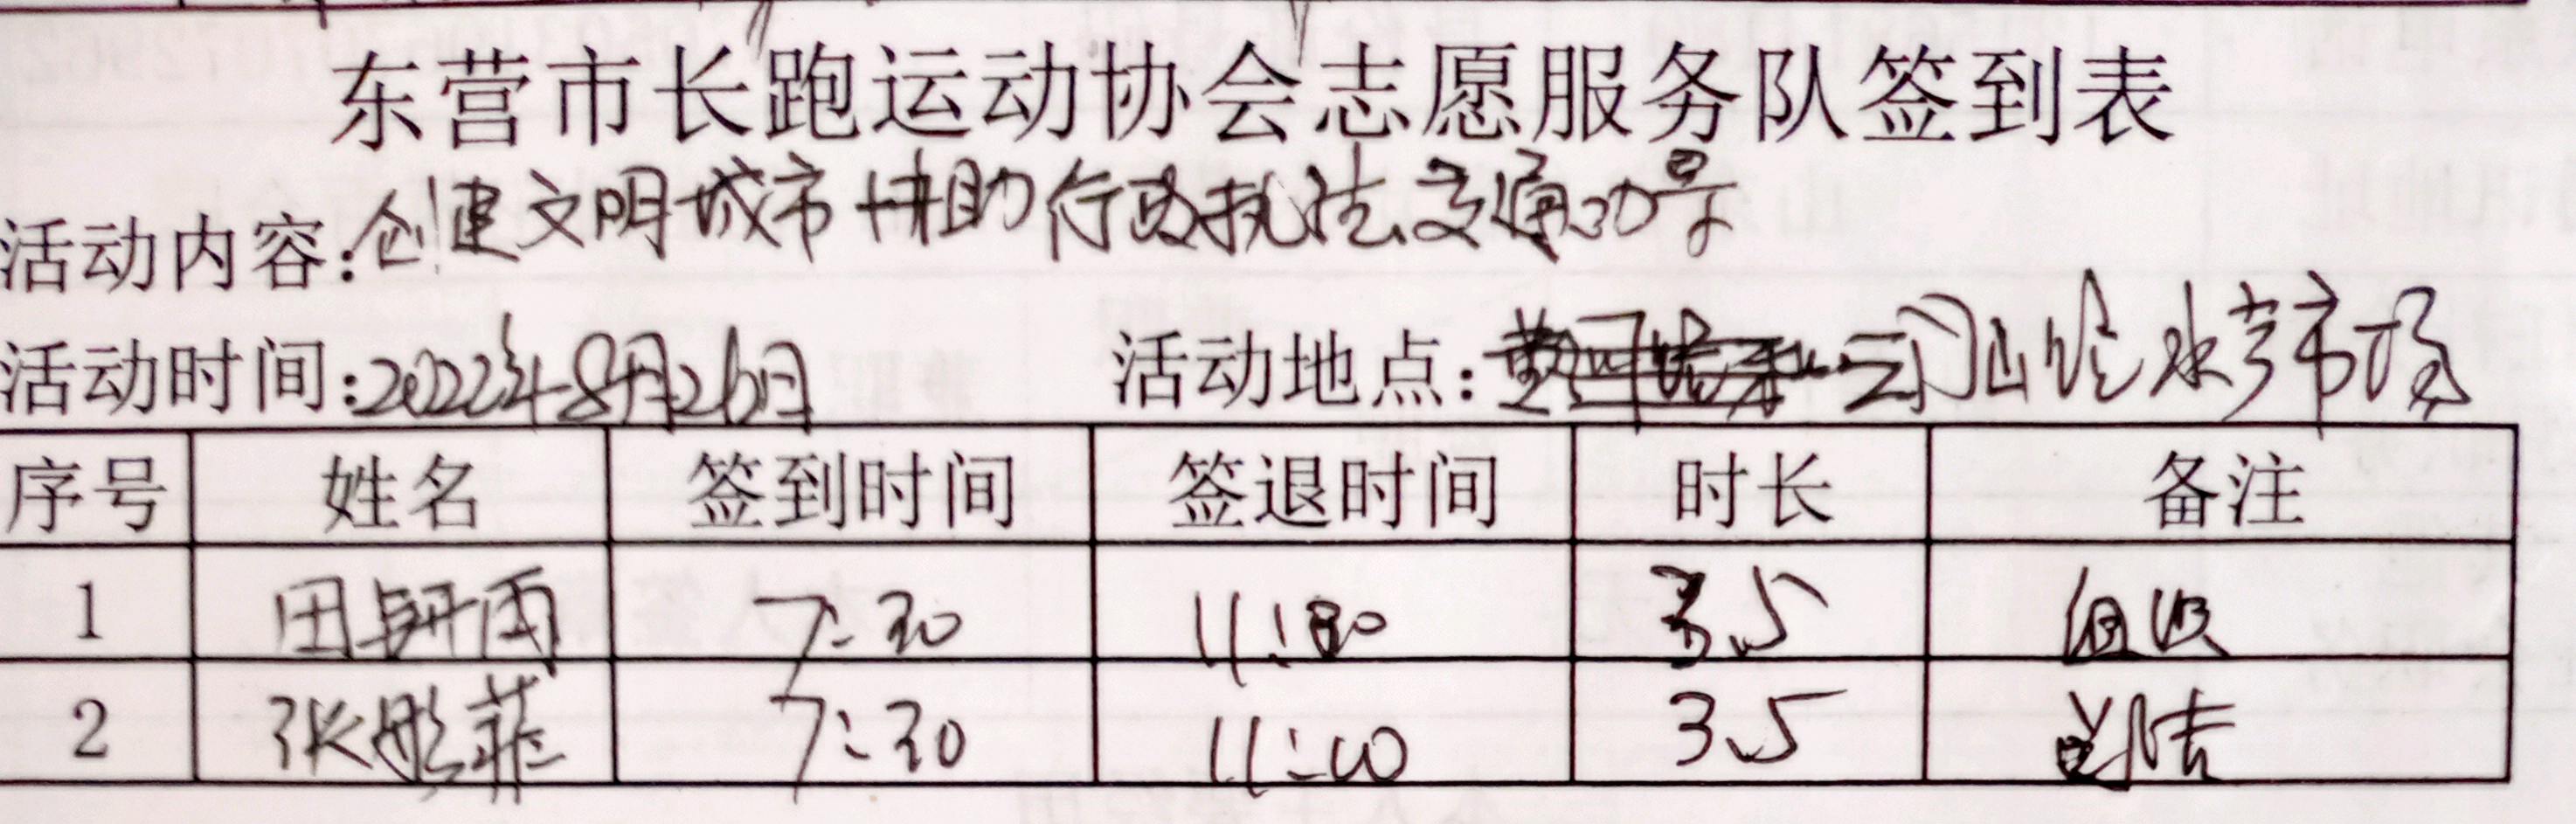 东营市长跑运动协会志愿服务队签到表
活动内容:创建文明城市 协助行政执法交通劝导
活动时间:2022年8月26日 活动地点:云门山路水产市场
序号 姓名 签到时间 签退时间 时长 备注
1 田雨 7:30 11:00 3.5
2 张彤菲 7:30 11:00 3.5